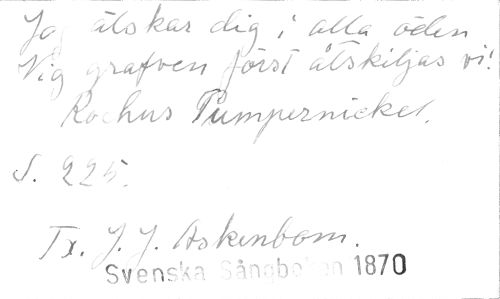 Jag älskar dig i alla öden
Vig grafven först åtskiljas vi!
Rochus Pumpernickel.
S. 225.
Tx. J. J. Askenbom.
Svenska Sångboken 1870